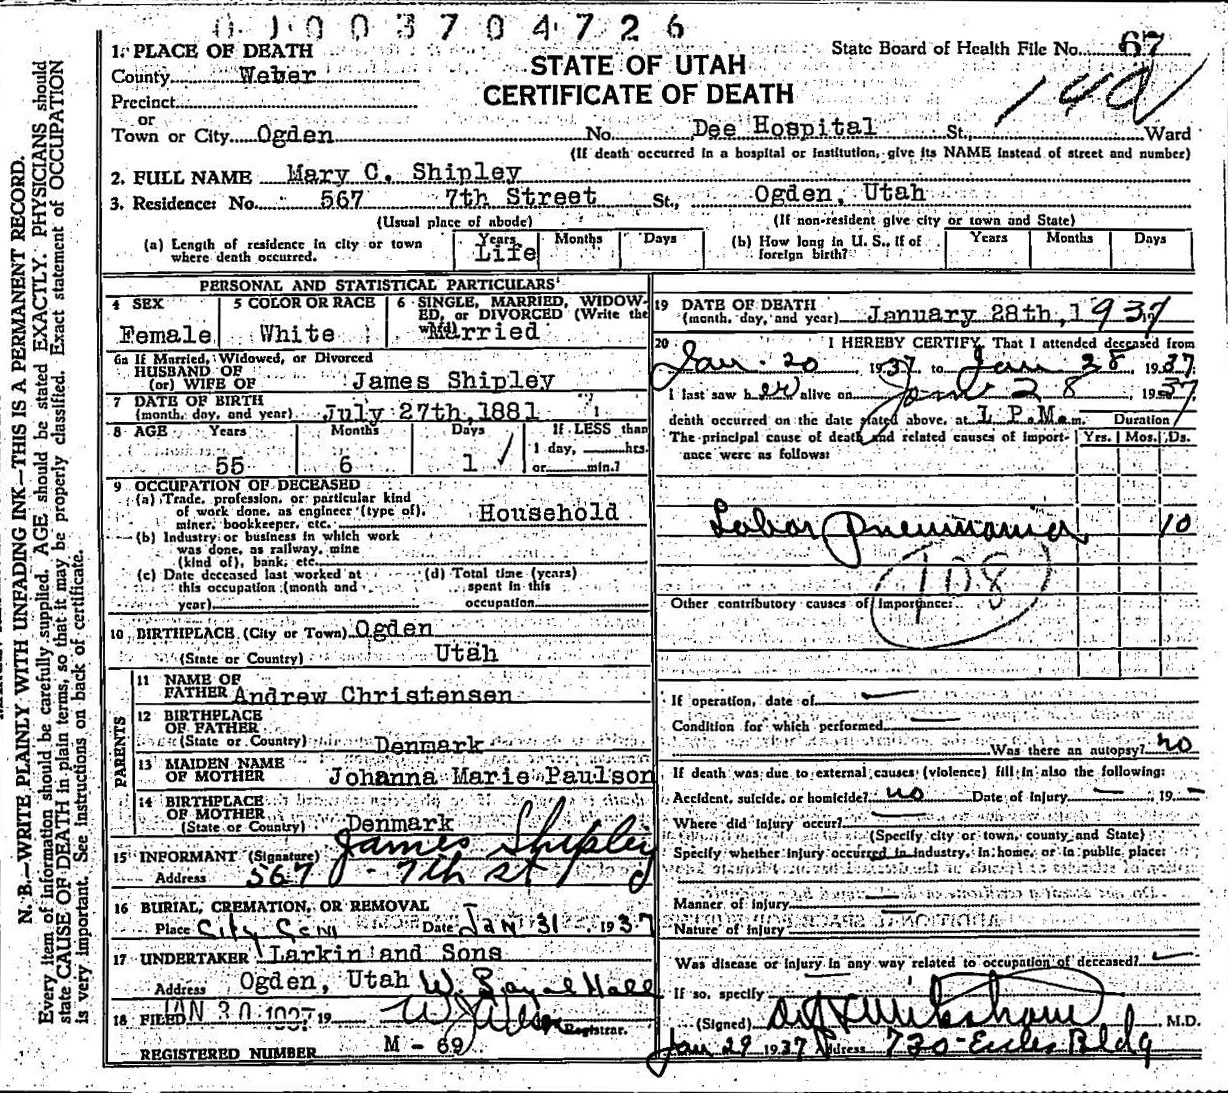 0 1 0 0 3 7 0 4 7 2 6
State Board of Health File No. 67
STATE OF UTAH
CERTIFICATE OF DEATH
140
1. PLACE OF DEATH
County Weber
Precinct
or
Town or City Ogden No. Dee Hospital St., Ward
(If death occurred in a hospital or institution, give its NAME instead of street and number)
2. FULL NAME Mary C. Shipley
3. Residence: No. 567 7th Street St., Ogden, Utah
(Usual place of abode) (If non-resident give city or town and State)
(a) Length of residence in city or town where death occurred. Years Life Months Days
(b) How long in U. S., if of foreign birth? Years Months Days
PERSONAL AND STATISTICAL PARTICULARS
4 SEX Female
5 COLOR OR RACE White
6 SINGLE, MARRIED, WIDOWED, or DIVORCED (Write the word) Married
6a If Married, Widowed, or Divorced
HUSBAND OF
(or) WIFE OF James Shipley
7 DATE OF BIRTH
(month, day, and year) July 27th, 1881
8 AGE Years Months Days If LESS than
1 day, hrs.
55 6 1 or min.?
9 OCCUPATION OF DECEASED
(a) Trade, profession, or particular kind
of work done, as engineer (type of), Household
miner, bookkeeper, etc.
(b) Industry or business in which work
was done, as railway, mine
(kind of), bank, etc.
(c) Date deceased last worked at this occupation (month and year)
(d) Total time (years) spent in this occupation
10 BIRTHPLACE (City or Town) Ogden
(State or Country) Utah
PARENTS
11 NAME OF
FATHER Andrew Christensen
12 BIRTHPLACE
OF FATHER
(State or Country) Denmark
13 MAIDEN NAME
OF MOTHER Johanna Marie Paulson
14 BIRTHPLACE
OF MOTHER
(State or Country) Denmark
15 INFORMANT (Signature) James Shipley
Address 567 - 7th St
16 BURIAL, CREMATION, OR REMOVAL
Place City Cem Date Jan 31 1937
17 UNDERTAKER Larkin and Sons
Address Ogden, Utah
18 FILED JAN 30 1937 19 Registrar.
REGISTERED NUMBER M - 69
19 DATE OF DEATH
(month, day, and year) January 28th, 1937
20 I HEREBY CERTIFY, That I attended deceased from
Jan - 20, 1937 to Jan 28, 1937
I last saw her alive on Jan 28, 1937
death occurred on the date stated above, at 1 P.M. m.
Duration
The principal cause of death and related causes of importance were as follows: Yrs. Mos. Ds.
Lobar Pneumonia 10
108
Other contributory causes of importance:
If operation, date of
Condition for which performed
Was there an autopsy? no
If death was due to external causes (violence) fill in also the following:
Accident, suicide, or homicide? no Date of injury 19
Where did injury occur?
(Specify city or town, county and State)
Specify whether injury occurred in industry, in home, or in public place:
Manner of injury
Nature of injury
Was disease or injury in any way related to occupation of deceased?
If so, specify
(Signed) M.D.
Jan 29 1937 Address 730 - Eccles Bldg
N. B.—WRITE PLAINLY WITH UNFADING INK—THIS IS A PERMANENT RECORD.
Every item of information should be carefully supplied. AGE should be stated EXACTLY. PHYSICIANS should
state CAUSE OF DEATH in plain terms, so that it may be properly classified. Exact statement of OCCUPATION
is very important. See instructions on back of certificate.